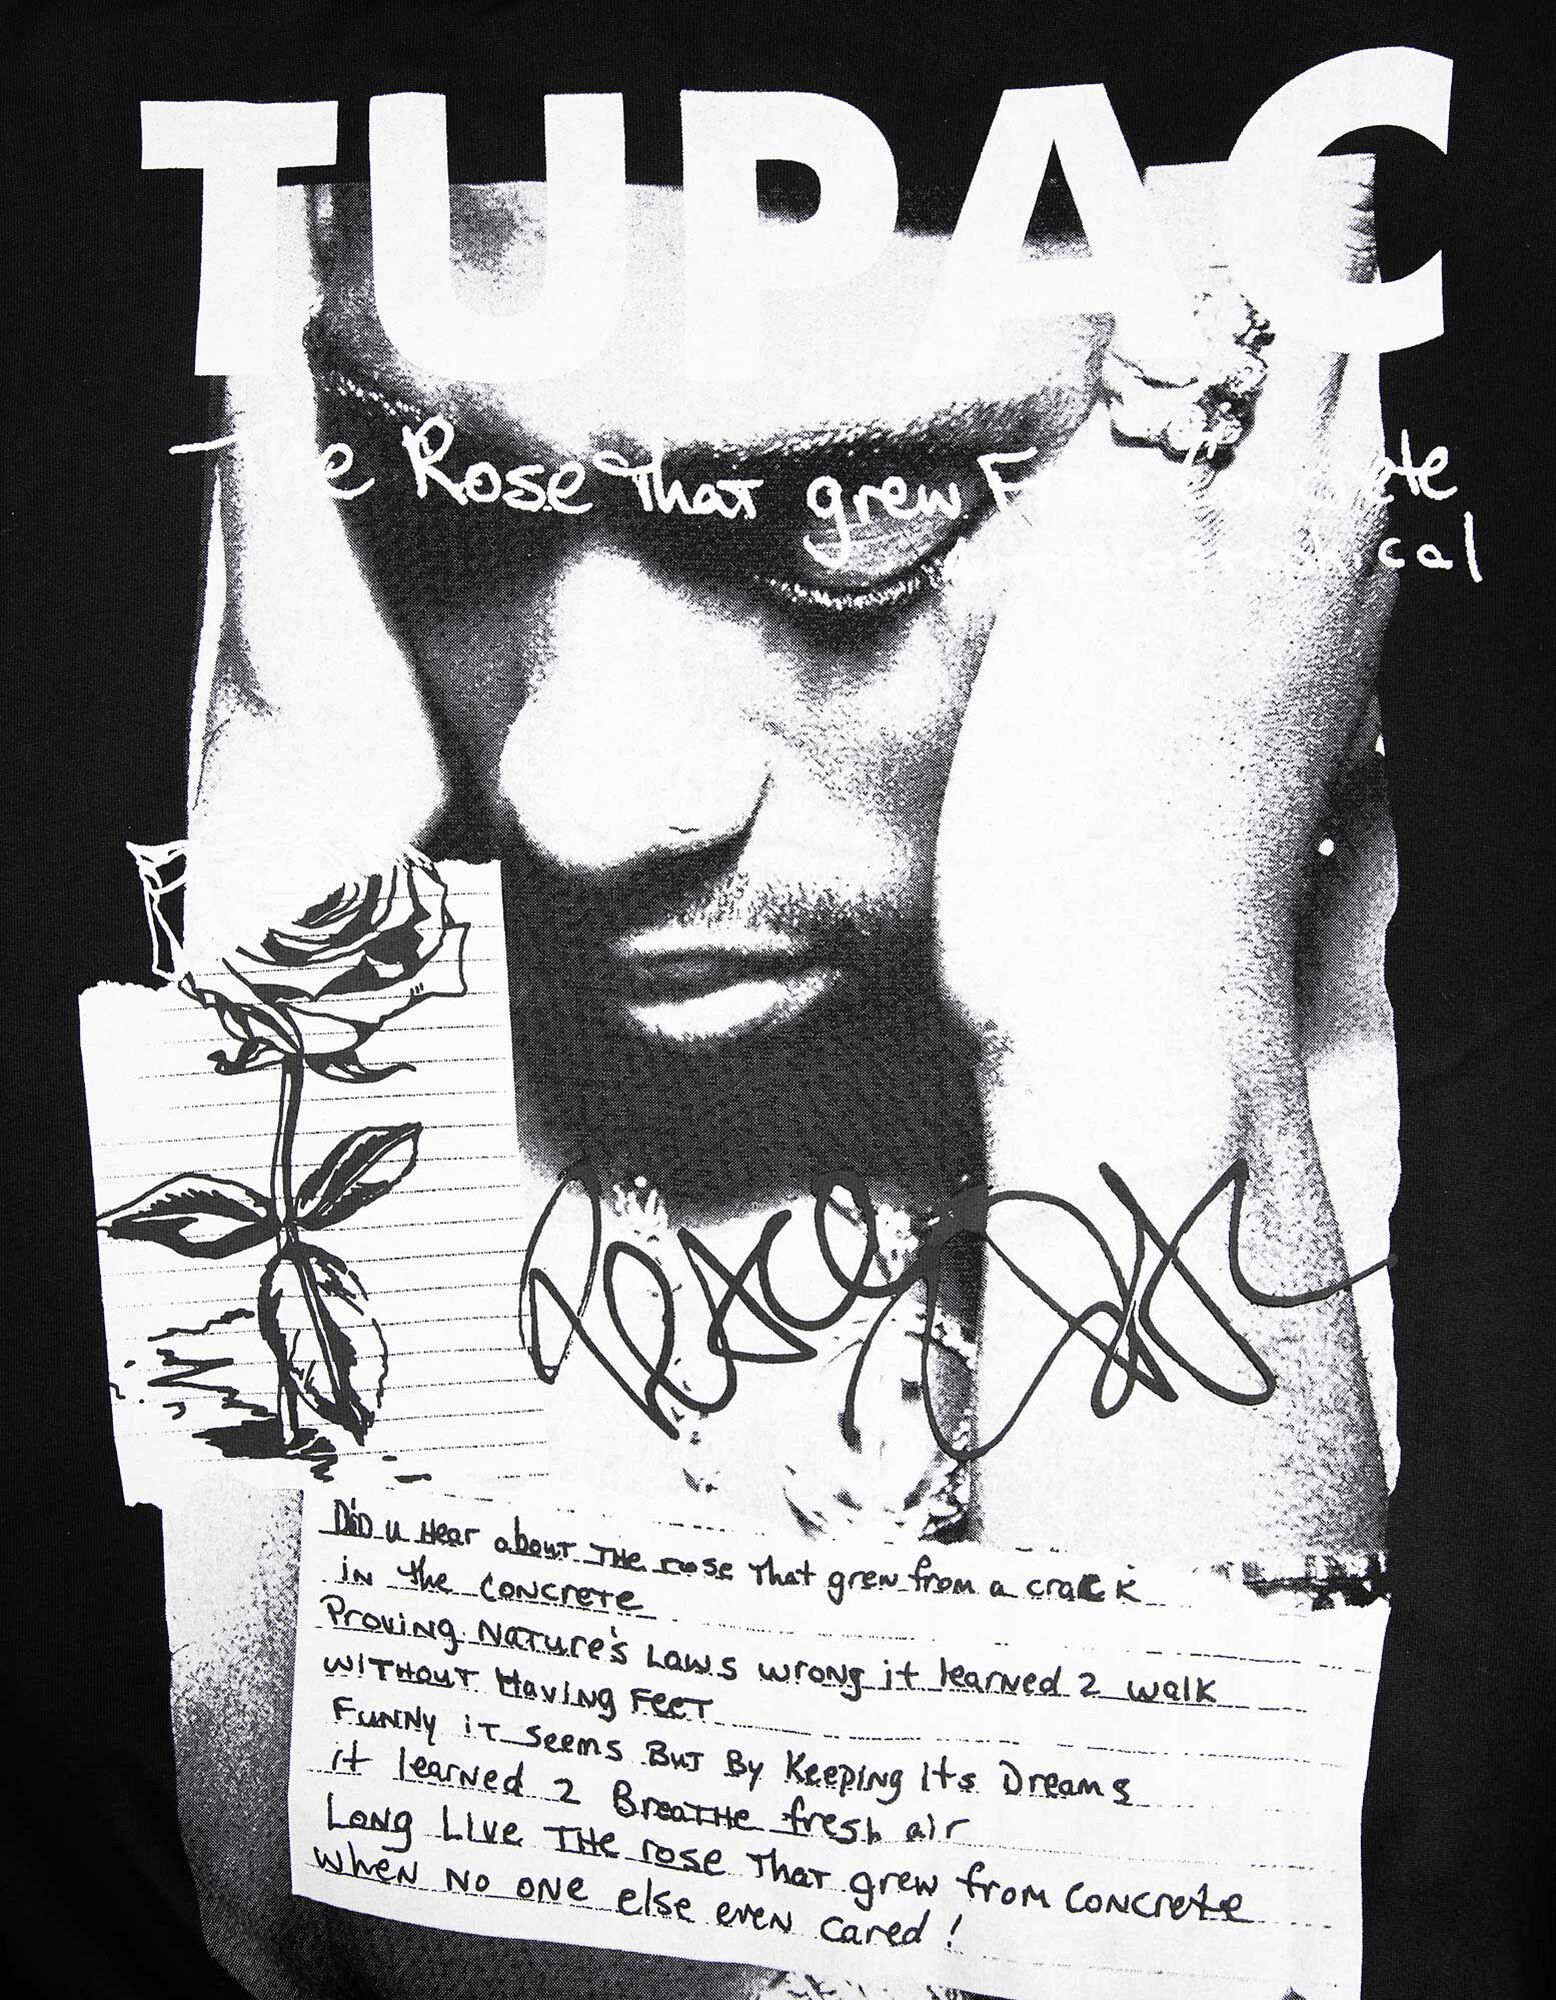 TUPAC
The Rose That grew F ete
cal
Peace 2Pac
DiD u Hear about THe rose That grew from a crack
iN the CONCRETE
Proving Nature's Laws wrong it learned 2 walk
WITHOUT Having FEET
FUNNy iT Seems But By Keeping Its Dreams
it learned 2 BreaTHe fresh air
Long Live THe rose That grew from CONCrete
When NO ONE else even cared!